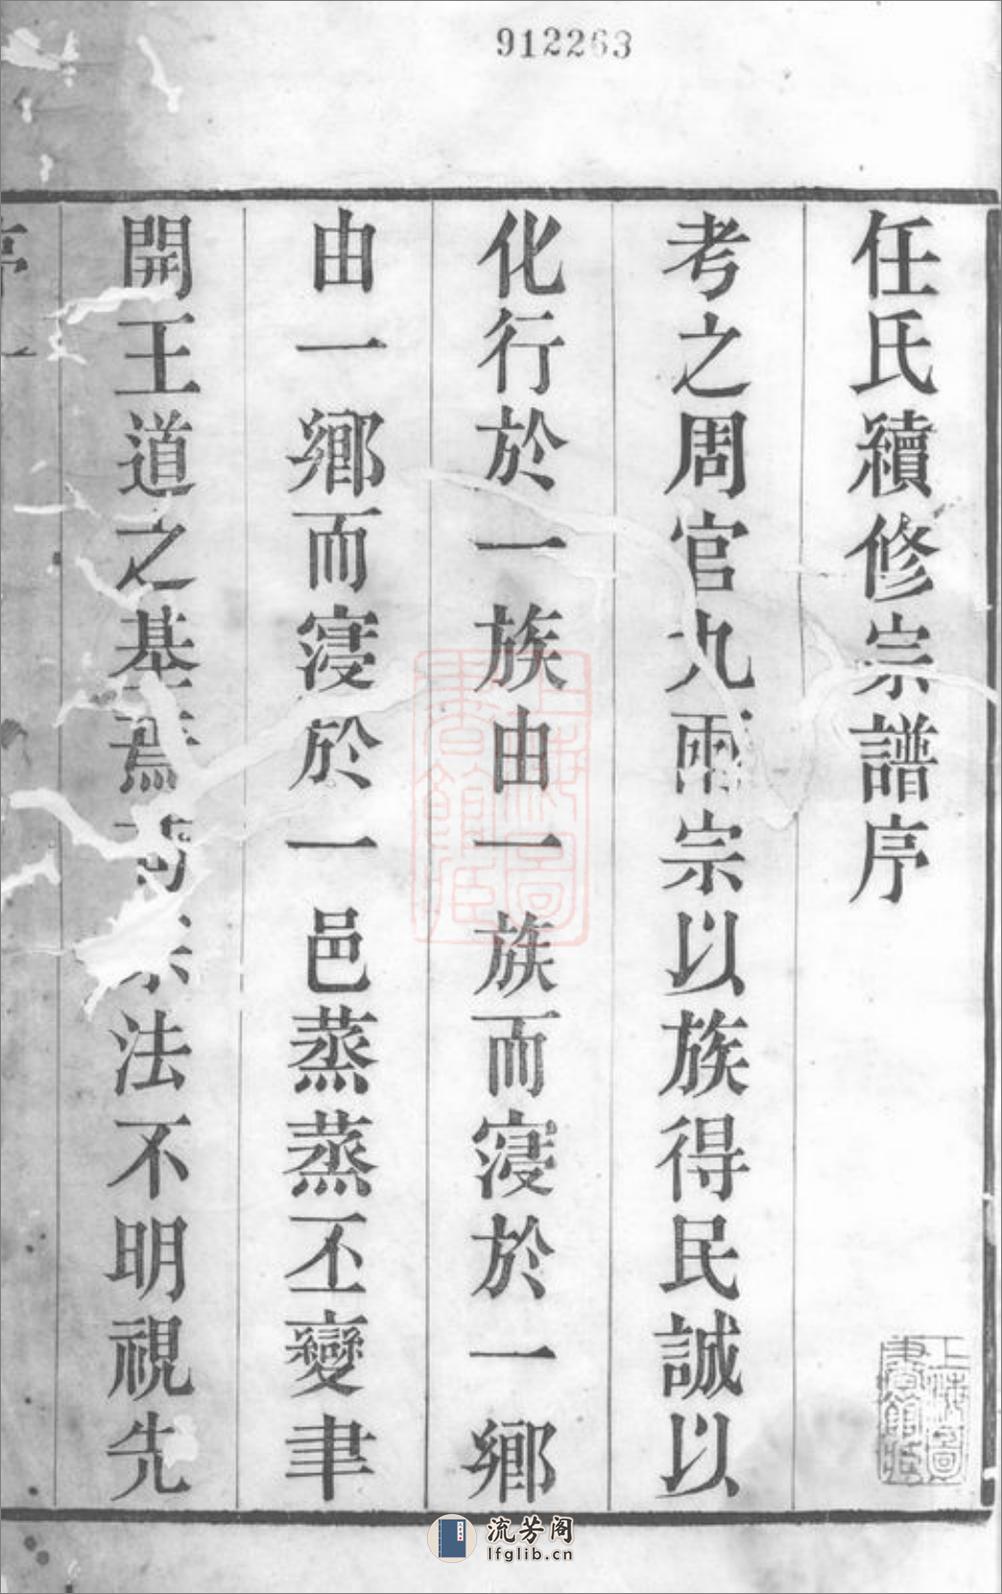 912263
任氏續修宗譜序
考之周官九兩宗以族得民誠以
化行於一族由一族而寖於一鄉
由一鄉而寖於一邑蒸蒸丕變聿
開王道之基焉宗法不明視先
序一
上海圖書館藏
上海圖書館藏
流芳阁
lfglib.cn